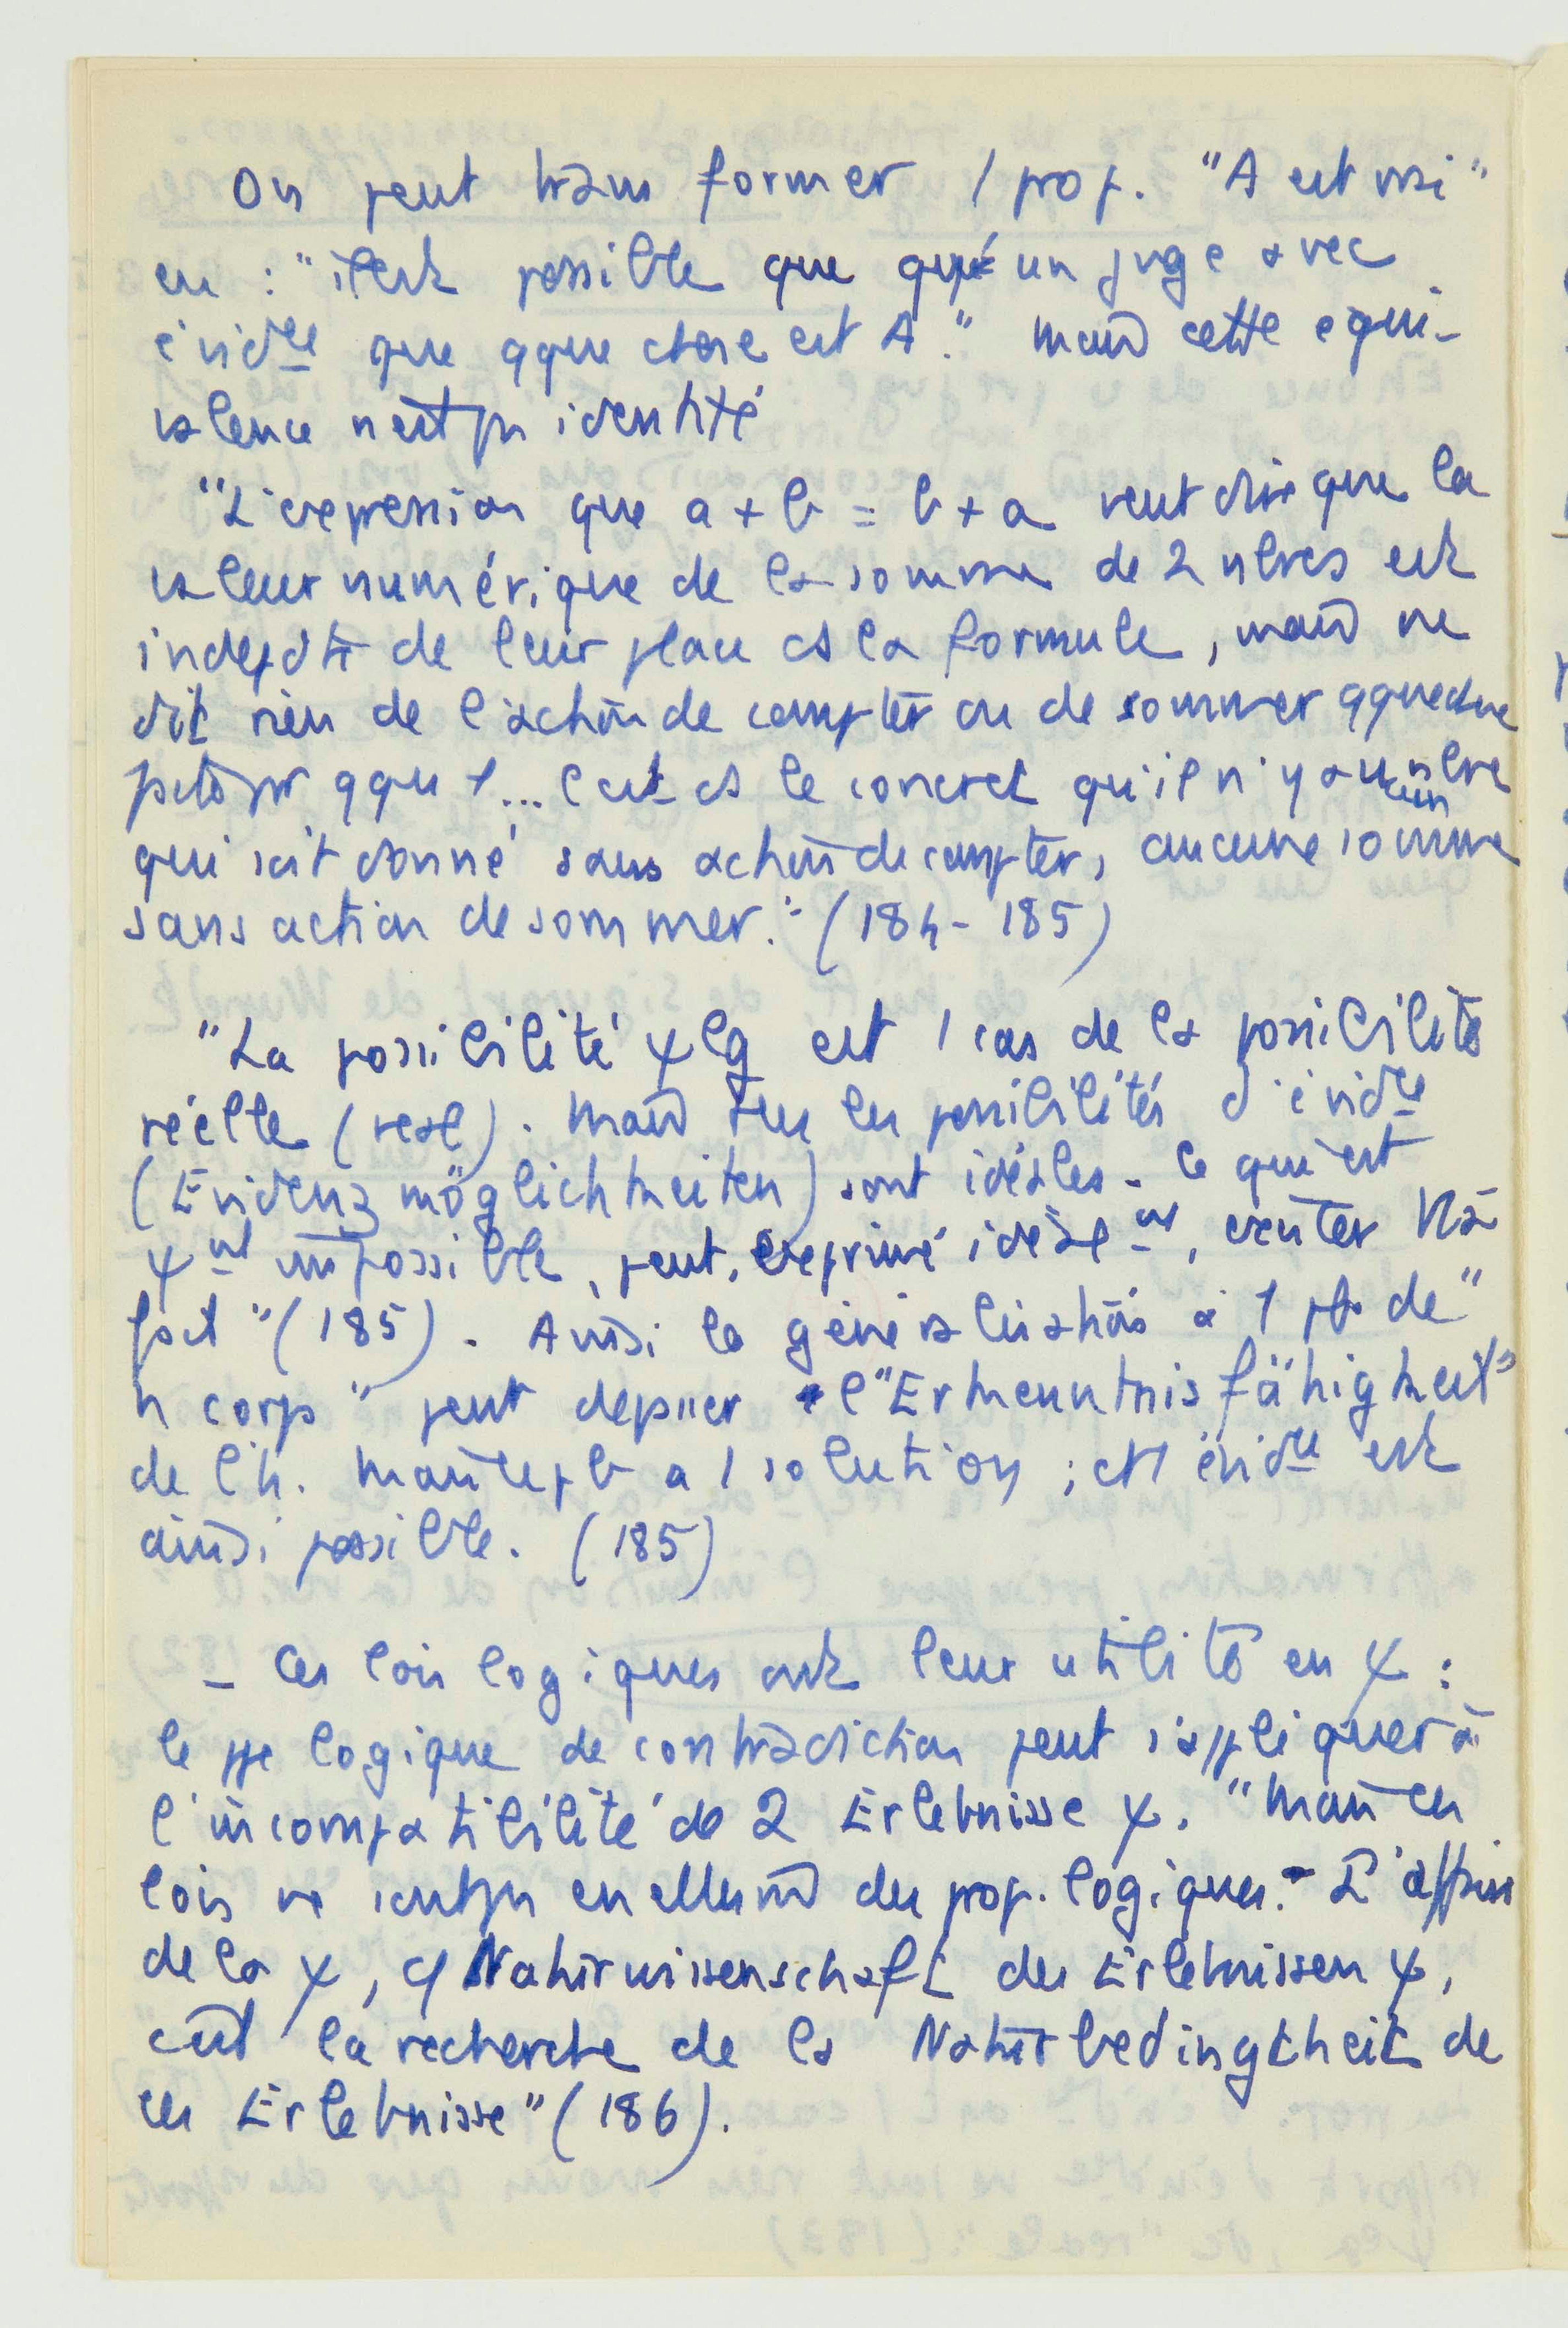 On peut transformer 1 prop. "A est vrai"
en : "il est possible que qqu'un juge avec
évidce que qque chose est A." Mais cette équi-
valence n'est pas identité
"L'expression que a + b = b + a veut dire que la
valeur numérique de la somme de 2 nbres est
indepdte de leur place ds la formule, mais ne
dit rien de l'action de compter ou de sommer qque chose
par qqu'1... C'est ds le concret qu'il n'y a aucun nbre
qui soit donné sans action de compter, aucune somme
sans action de sommer." (184-185)
"La possibilité ψlg est 1 cas de la possibilité
réelle (real). Mais les possibilités d'évidce
(Evidenzmöglichkeiten) sont idéales. Ce qui est
ψnt impossible, peut, exprimé idéalnt, exister
fait" (185). Ainsi la généralisation à 1 pb de "
n corps" peut dépasser l'"Erkenntnisfähigkeit"
de l'h. Mais ce pb a 1 solution ; et 1 évidce est
ainsi possible. (185)
- Ces lois logiques ont leur utilité en ψ :
le ppe logique de contradiction peut s'appliquer à
l'incompatibilité de 2 Erlebnisse ψ. "Mais ces
lois ne sont pas en elles mêmes des prop. logiques. L'affaire
de la ψ, cf Naturwissenschaft des Erlebnissen ψ,
c'est la recherche de la Naturbedingtheit de
ces Erlebnisse" (186).